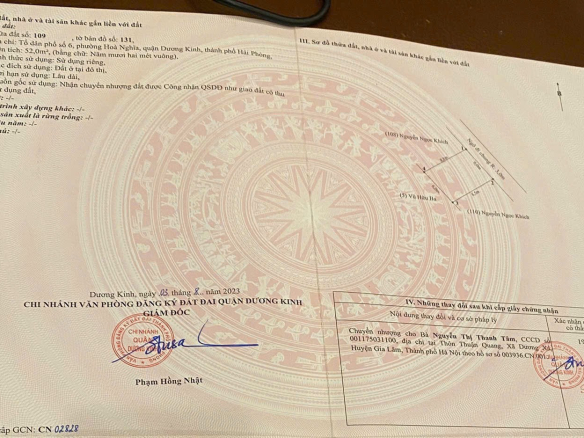 đất, nhà ở và tài sản khác gắn liền với đất
đất:
ửa đất số: 109, tờ bản đồ số: 131,
a chỉ: Tổ dân phố số 6, phường Hoà Nghĩa, quận Dương Kinh, thành phố Hải Phòng,
ện tích: 52,0m², (bằng chữ: Năm mươi hai mét vuông),
nh thức sử dụng: Sử dụng riêng,
c đích sử dụng: Đất ở tại đô thị,
i hạn sử dụng: Lâu dài,
uồn gốc sử dụng: Nhận chuyển nhượng đất được Công nhận QSDĐ như giao đất có thu
ử dụng đất,
: -/-
trình xây dựng khác: -/-
sản xuất là rừng trồng: -/-
u năm: -/-
hú: -/-
Dương Kinh, ngày 05 tháng 8 năm 2023
CHI NHÁNH VĂN PHÒNG ĐĂNG KÝ ĐẤT ĐAI QUẬN DƯƠNG KINH
GIÁM ĐỐC
CHI NHÁNH
QUẬN
DƯƠNG KINH
Phạm Hồng Nhật
cấp GCN: CN 02828
III. Sơ đồ thửa đất, nhà ở và tài sản khác gắn liền với đất
(108) Nguyễn Ngọc Khích
(5) Vũ Hữu
(110) Nguyễn Ngọc Khích
IV. Những thay đổi sau khi cấp giấy chứng nhận
Nội dung thay đổi và cơ sở pháp lý
Xác nhận
có thẩ
Chuyển nhượng cho Bà Nguyễn Thị Thanh Tâm, CCCD số
001175031100, địa chỉ tại Thôn Thuận Quang, Xã Dương Xá,
Huyện Gia Lâm, Thành phố Hà Nội theo hồ sơ số 003936.CN.001